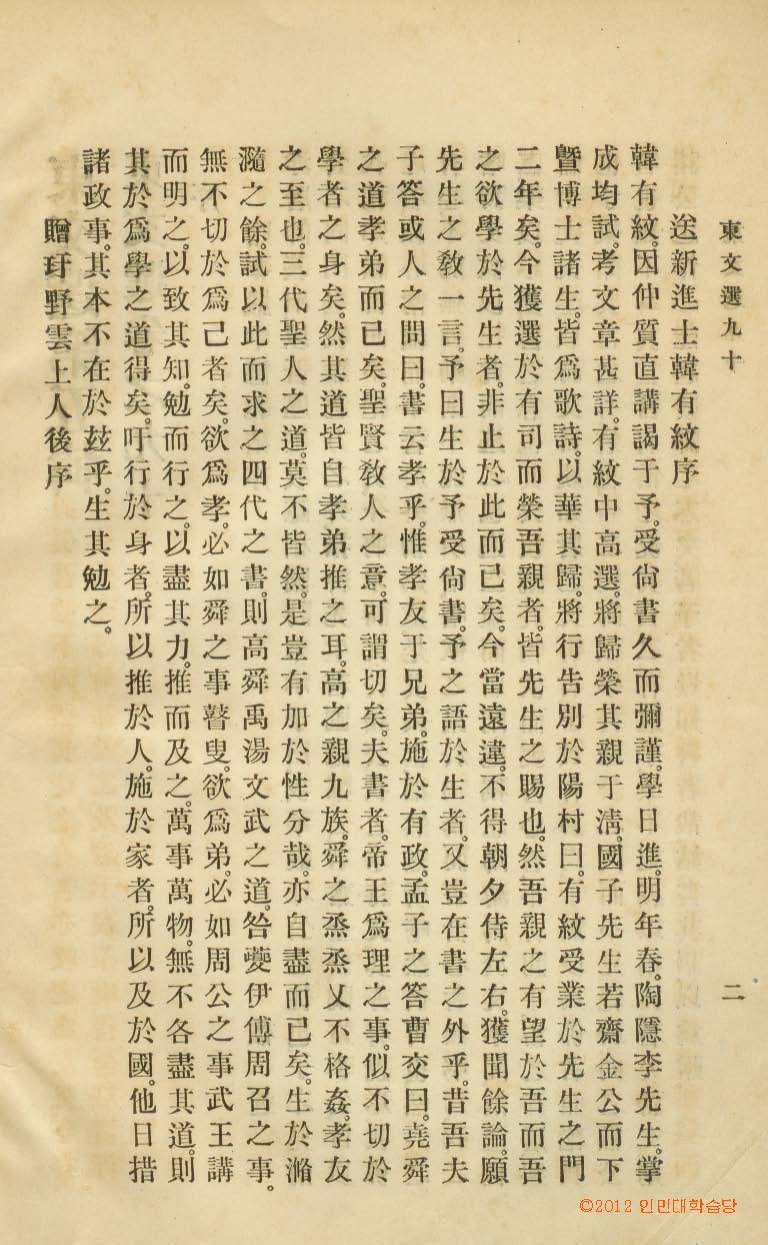 東文選九十
二
送新進士韓有紋序
韓有紋。因仲質直講謁于予。受尙書久而彌謹。學日進。明年春。陶隱李先生。掌
成均試。考文章甚詳。有紋中高選。將歸榮其親于淸。國子先生若齋金公而下
曁博士諸生。皆爲歌詩。以華其歸。將行告別於陽村曰。有紋受業於先生之門
二年矣。今獲選於有司而榮吾親者。皆先生之賜也。然吾親之有望於吾而吾
之欲學於先生者。非止於此而已矣。今當遠違。不得朝夕侍左右。獲聞餘論。願
先生之敎一言。予曰生於予受尙書。予之語於生者。又豈在書之外乎。昔吾夫
子答或人之問曰。書云孝乎。惟孝友于兄弟。施於有政。孟子之答曹交曰。堯舜
之道孝弟而已矣。聖賢敎人之意。可謂切矣。夫書者。帝王爲理之事。似不切於
學者之身矣。然其道皆自孝弟推之耳。高之親九族。舜之烝烝乂不格姦。孝友
之至也。三代聖人之道。莫不皆然。是豈有加於性分哉。亦自盡而已矣。生於滫
瀡之餘。試以此而求之四代之書。則高舜禹湯文武之道。咎夔伊傅周召之事。
無不切於爲己者矣。欲爲孝。必如舜之事瞽叟。欲爲弟。必如周公之事武王講
而明之。以致其知。勉而行之。以盡其力。推而及之。萬事萬物。無不各盡其道。則
其於爲學之道得矣。吁行於身者。所以推於人。施於家者。所以及於國。他日措
諸政事。其本不在於玆乎。生其勉之。
贈玗野雲上人後序
©2012 인민대학습당